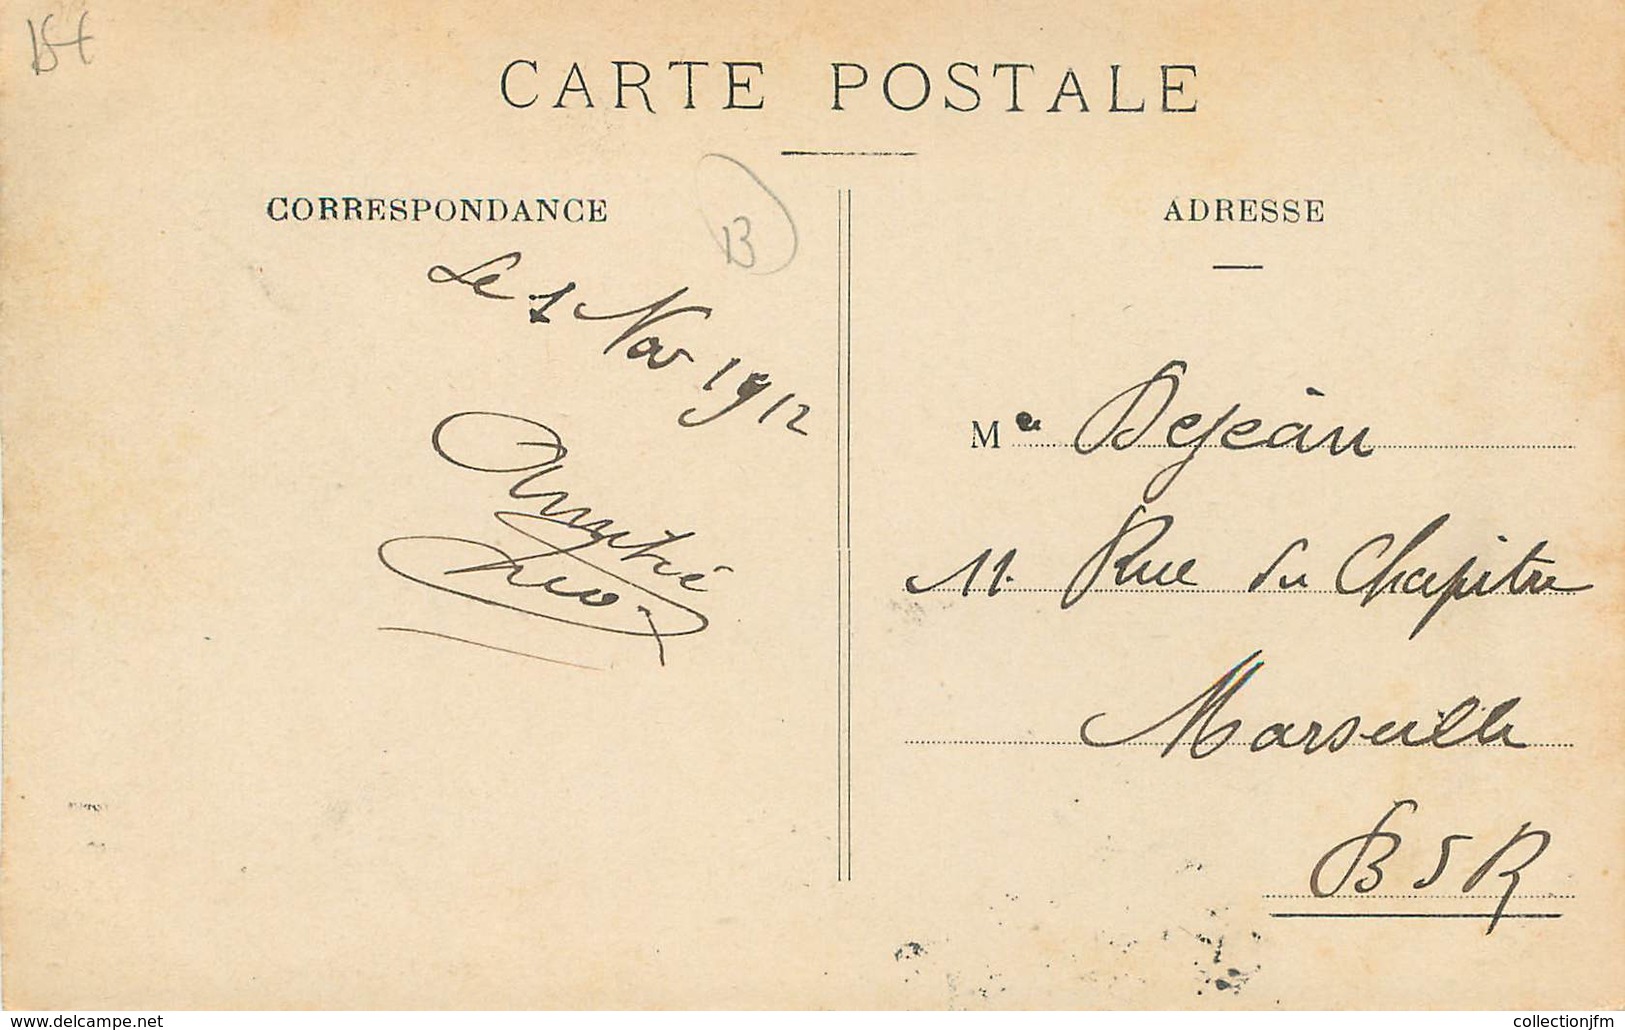 CARTE POSTALE
CORRESPONDANCE
B
Le 1 Nov 1912
ADRESSE
Me Dejean
11. Rue du Chapitre
Marseille
B d R
www.delcampe.net
collectionjfm